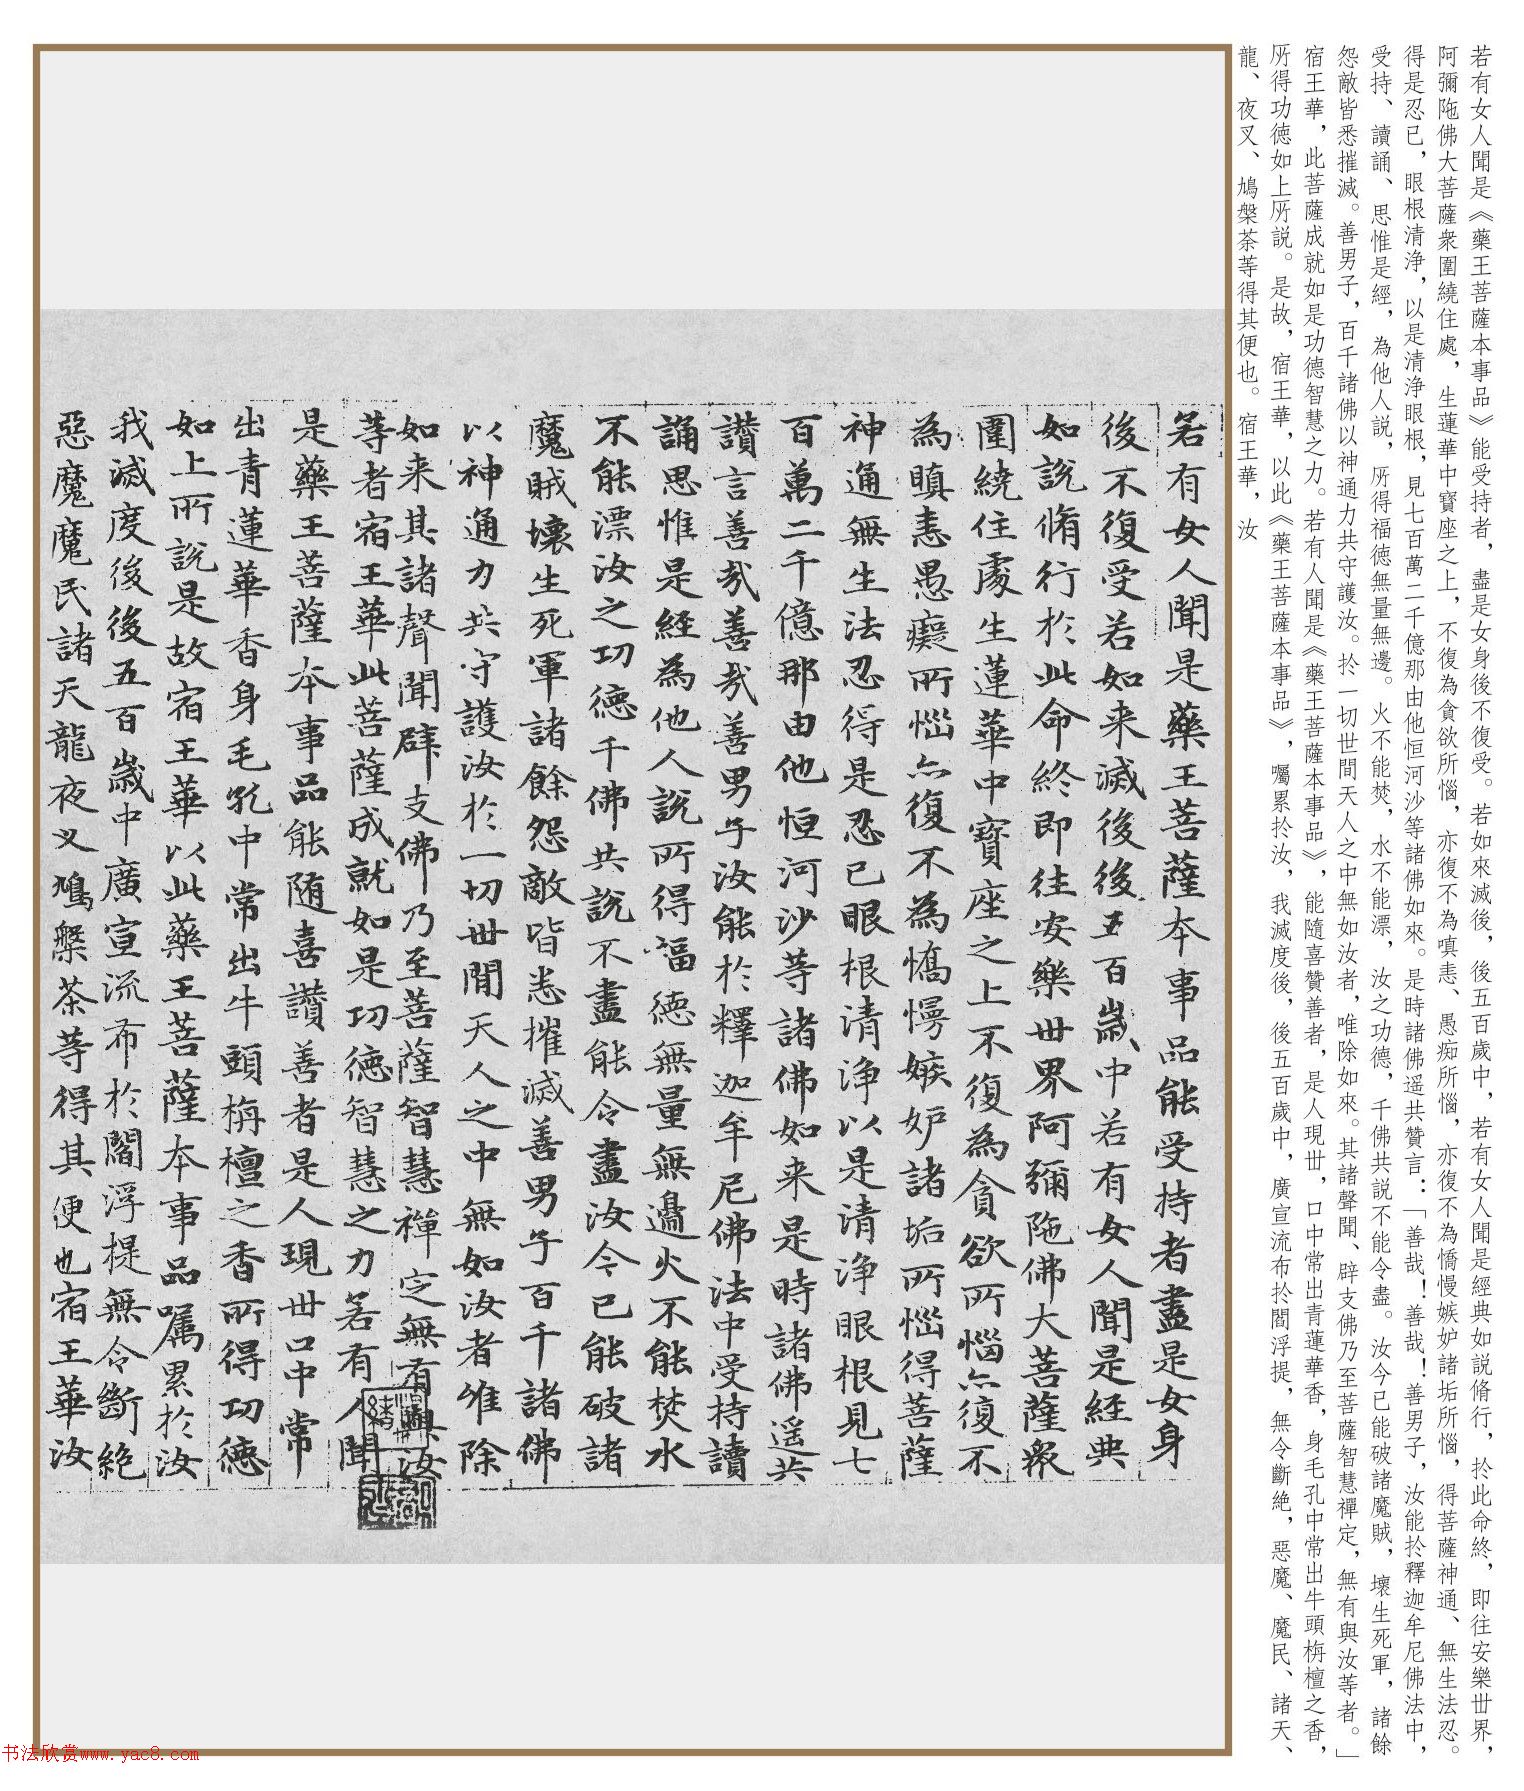 若有女人聞是《藥王菩薩本事品》能受持者，盡是女身後不復受。若如來滅後，後五百歲中，若有女人聞是經典如説脩行，扵此命終，即往安樂丗界，
阿彌陁佛大菩薩衆圍繞住處，生蓮華中寶座之上，不復為貪欲所惱，亦復不為嗔恚、愚痴所惱，亦復不為憍慢嫉妒諸垢所惱，得菩薩神通、無生法忍。
得是忍已，眼根清浄，以是清浄眼根，見七百萬二千億那由他恒河沙等諸佛如來。是時諸佛遥共贊言：「善哉！善哉！善男子，汝能扵釋迦牟尼佛法中，
受持、讀誦、思惟是經，為他人説，所得福德無量無邊。火不能焚，水不能漂，汝之功德，千佛共説不能令盡。汝今已能破諸魔賊，壞生死軍，諸餘
怨敵皆悉摧滅。善男子，百千諸佛以神通力共守護汝。扵一切世間天人之中無如汝者，唯除如來。其諸聲聞、辟支佛乃至菩薩智慧禪定，無有與汝等者。」
宿王華，此菩薩成就如是功德智慧之力。若有人聞是《藥王菩薩本事品》，能隨喜贊善者，是人現丗，口中常出青蓮華香，身毛孔中常出牛頭栴檀之香，
所得功德如上所説。是故，宿王華，以此《藥王菩薩本事品》，囑累扵汝，我滅度後，後五百歲中，廣宣流布扵閻浮提，無令斷絶，惡魔、魔民、諸天、
龍、夜叉、鳩槃荼等得其便也。宿王華，汝
若有女人聞是藥王菩薩本事品能受持者盡是女身
後不復受若如来滅後後五百歲中若有女人聞是經典
如說脩行於此命終即往安樂丗界阿彌陁佛大菩薩衆
圍繞住處生蓮華中寶座之上不復為貪欲所惱亦復不
為瞋恚愚癡所惱亦復不為憍慢嫉妒諸垢所惱得菩薩
神通無生法忍得是忍已眼根清浄以是清浄眼根見七
百萬二千億那由他恒河沙等諸佛如来是時諸佛遥共
讃言善哉善哉善男子汝能於釋迦牟尼佛法中受持讀
誦思惟是經為他人說所得福德無量無邊火不能焚水
不能漂汝之功德千佛共說不盡能令盡汝今已能破諸
魔賊壞生死軍諸餘怨敵皆悉摧滅善男子百千諸佛
以神通力共守護汝於一切丗間天人之中無如汝者唯除
如来其諸聲聞辟支佛乃至菩薩智慧禪定無有與汝
等者宿王華此菩薩成就如是功德智慧之力若有人聞
是藥王菩薩本事品能随喜讃善者是人現丗口中常
出青蓮華香身毛孔中常出牛頭栴檀之香所得功德
如上所說是故宿王華以此藥王菩薩本事品囑累於汝
我滅度後後五百歲中廣宣流布於閻浮提無令斷絶
惡魔魔民諸天龍夜叉鳩槃荼等得其便也宿王華汝
书法欣赏www.yac8.com